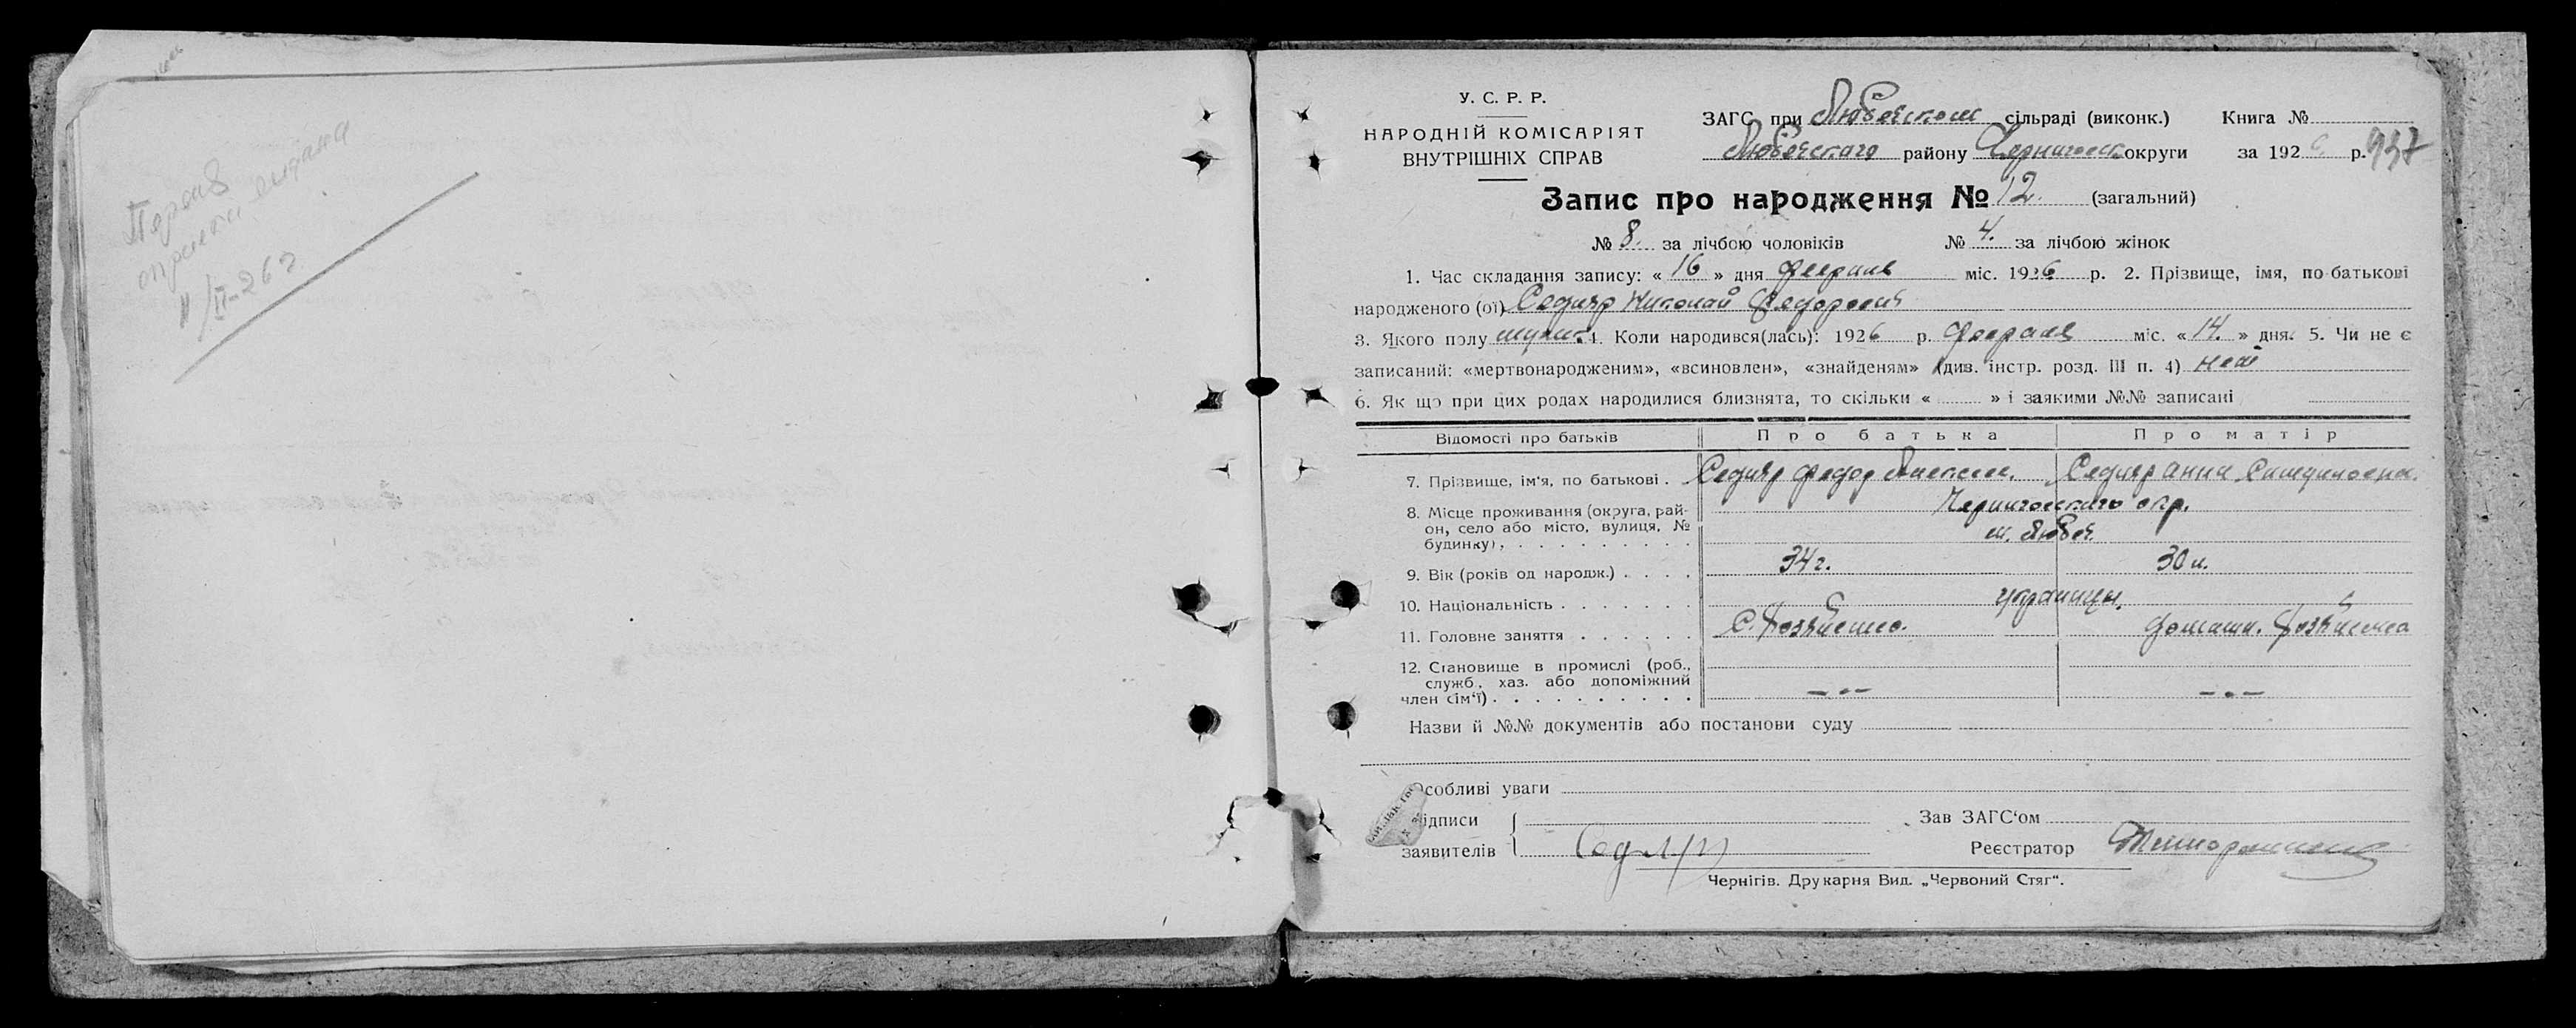 Первая
справка выдана
11/II-26 г.
У. С. Р. Р.
НАРОДНІЙ КОМІСАРІЯТ
ВНУТРІШНІХ СПРАВ
ЗАГС при Любечском сільраді (виконк.) Книга №
Любечскаго району Черниговск округи за 1926 р. 937
Запис про народження № 12. (загальний)
№ 8. за лічбою чоловіків № 4. за лічбою жінок
1. Час складання запису: « 16 » дня февраля міс. 1926 р. 2. Прізвище, імя, по-батькові
народженого (ої) Седляр Николай Федорович
3. Якого полу мужс. 4. Коли народився(лась): 1926 р. февраля міс. « 14. » дня. 5. Чи не є
записаний: «мертвонародженим», «всиновлен», «знайденям» (див. інстр. розд. III п. 4) нет
6. Як що при цих родах народилися близнята, то скільки « » і заякими №№ записані
Відомості про батьків Про батька Про матір
7. Прізвище, ім'я, по батькові . Седляр Федор Седляр Анна
8. Місце проживання (округа, рай- Черниговскаго окр.
он, село або місто, вулиця, № м. Любеч
будинку). . . . . . . . . . .
9. Вік (років од народж.) . . . . 34 г. 30 л.
10. Національність . . . . . . . украинцы.
11. Головне заняття . . . . . . С. Хозяйство. домашн. Хозяйства
12. Становище в промислі (роб.,
служб., хаз. або допоміжний
член сім'ї) . . . . . . . . . . —„— —„—
Назви й №№ документів або постанови суду
Особливі уваги
Підписи Зав ЗАГС'ом
заявителів Седляр Реєстратор
Чернігів. Друкарня Вид. „Червоний Стяг".